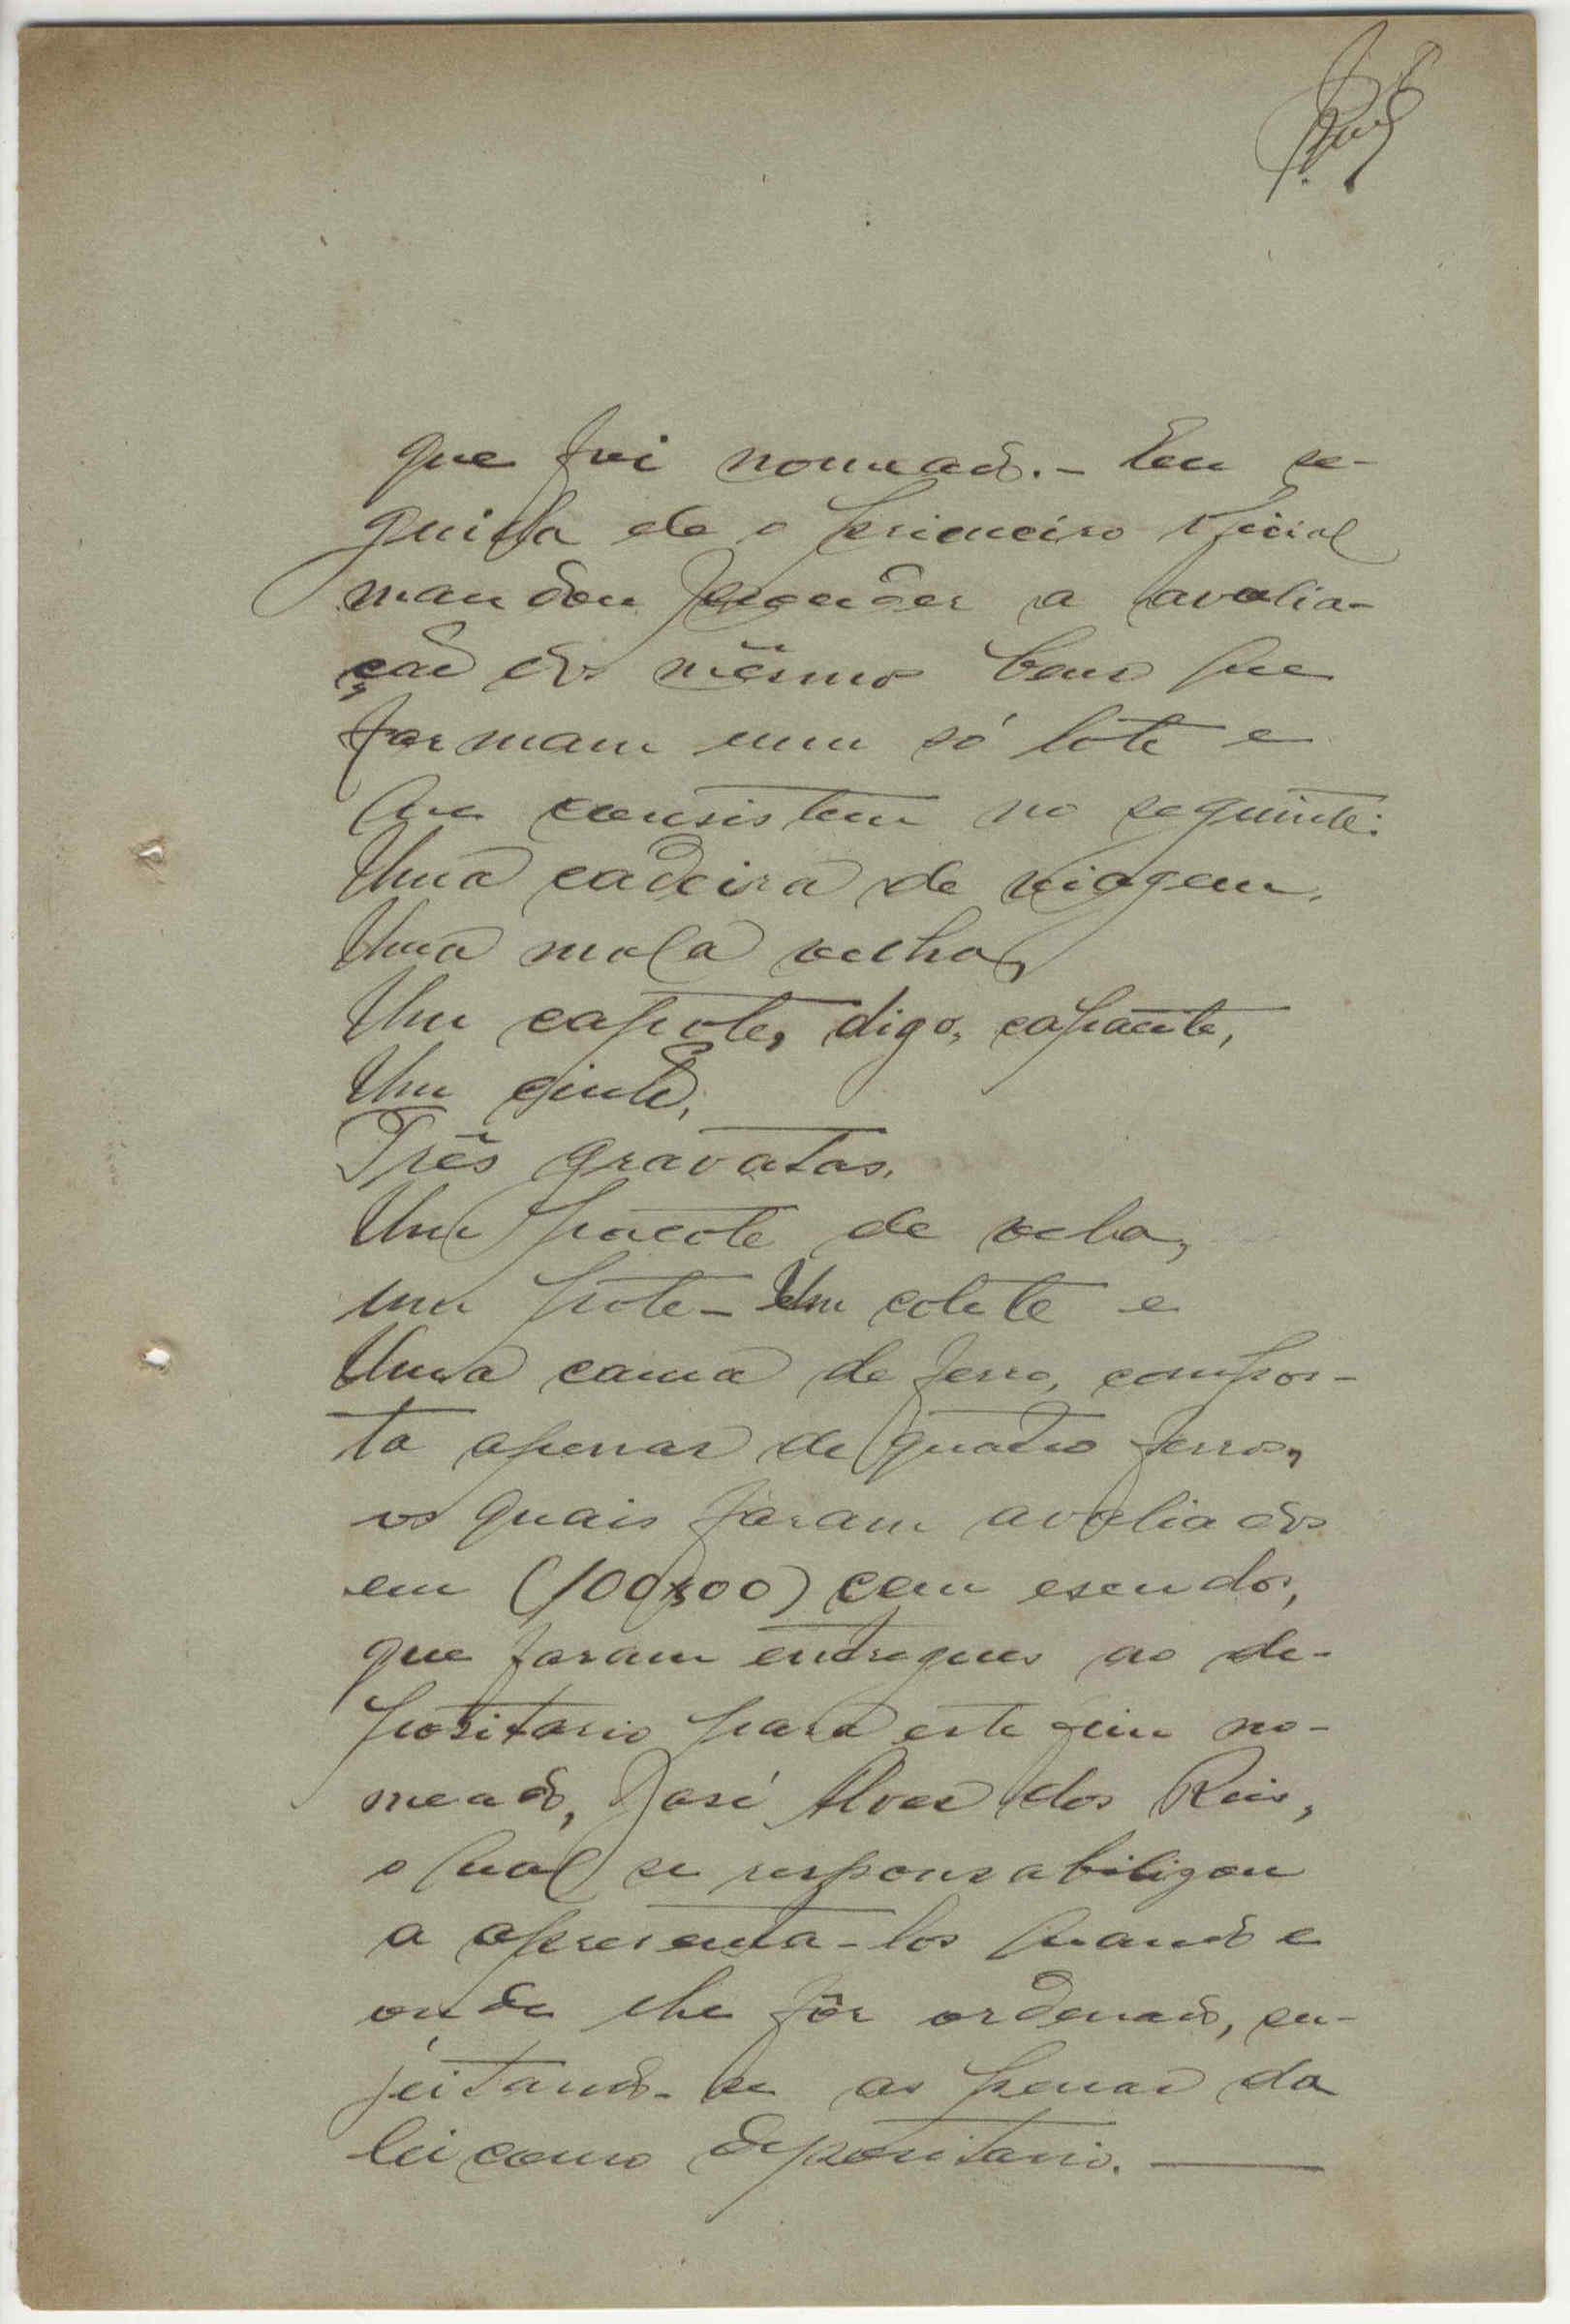 que foi nomeado. - Em se-
guida ele o primeiro oficial
mandou proceder a avalia-
ção dos mêsmos bens que
formam um só lote e
que consistem no seguinte:
Uma cadeira de viagem,
Uma mala velha,
Um capote, digo, capacete,
Um cinto,
Três gravatas,
Um pacote de vela,
um pote - Um colete e
Uma cama de ferro, compos-
ta apenas de quatro ferros,
os quais foram avaliados
em (100$00) cem escudos,
que foram entregues ao de-
positario para este fim no-
meado, José Alves dos Reis,
o qual se responsabilizou
a apresenta-los quando e
onde lhe fôr ordenado, su-
jeitando-se as penas da
lei como depositario.